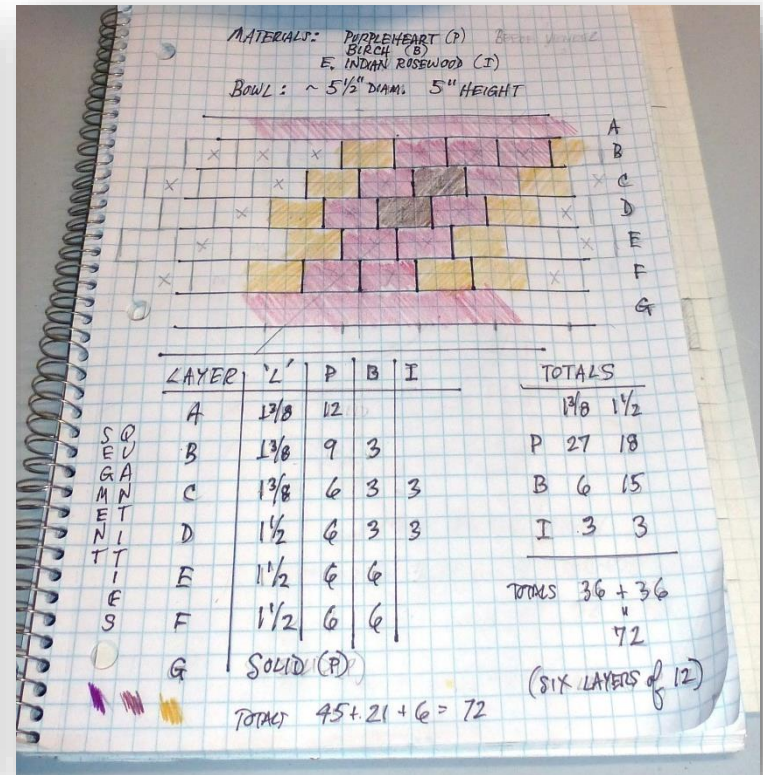 MATERIALS: PURPLEHEART (P)
BIRCH (B)
E. INDIAN ROSEWOOD (I)
BOWL: ~ 5 1/2" DIAM. 5" HEIGHT
A
B
C
D
E
F
G
LAYER 'L' P B I
A 1 3/8 12
B 1 3/8 9 3
C 1 3/8 6 3 3
D 1 1/2 6 3 3
E 1 1/2 6 6
F 1 1/2 6 6
G SOLID (P)
TOTALS 45 + 21 + 6 = 72
SEGMENT
QUANTITIES
TOTALS
1 3/8 1 1/2
P 27 18
B 6 15
I 3 3
TOTALS 36 + 36
"
72
(SIX LAYERS of 12)